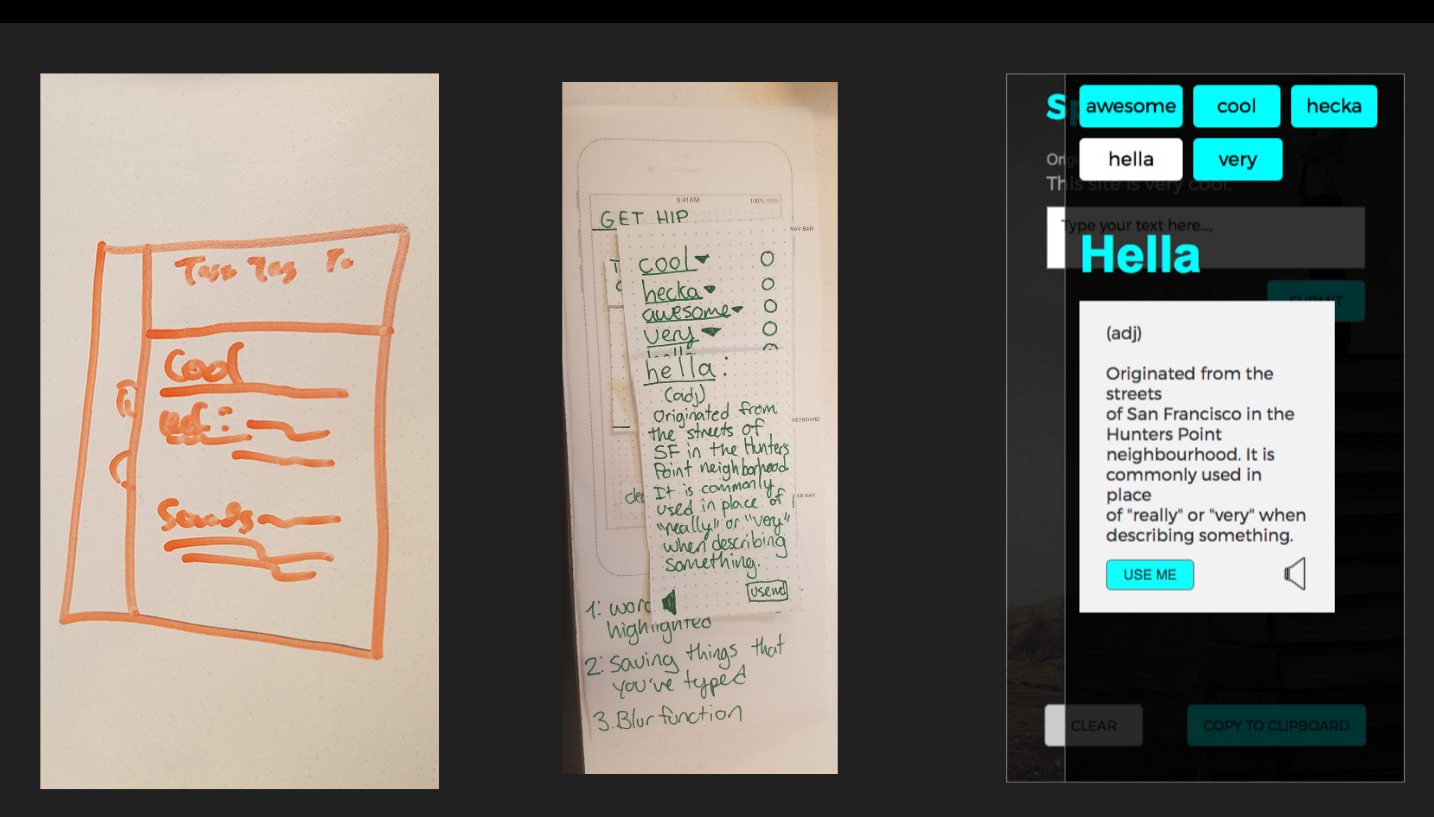 Cool
9:41 AM
100%
GET HIP
NAV BAR
cool
hecka
awesome
very
hella:
(adj)
Originated from
the streets of
SF in the Hunters
Point neighborhood.
It is commonly
used in place of
"really" or "very"
when describing
something.
KEYBOARD
TAB BAR
1: word
highlighted
2: Saving things that
you've typed
3. Blur function
awesome
cool
hecka
hella
very
This site is very cool.
Type your text here...,
Hella
SUBMIT
(adj)
Originated from the
streets
of San Francisco in the
Hunters Point
neighbourhood. It is
commonly used in
place
of "really" or "very" when
describing something.
USE ME
CLEAR
COPY TO CLIPBOARD